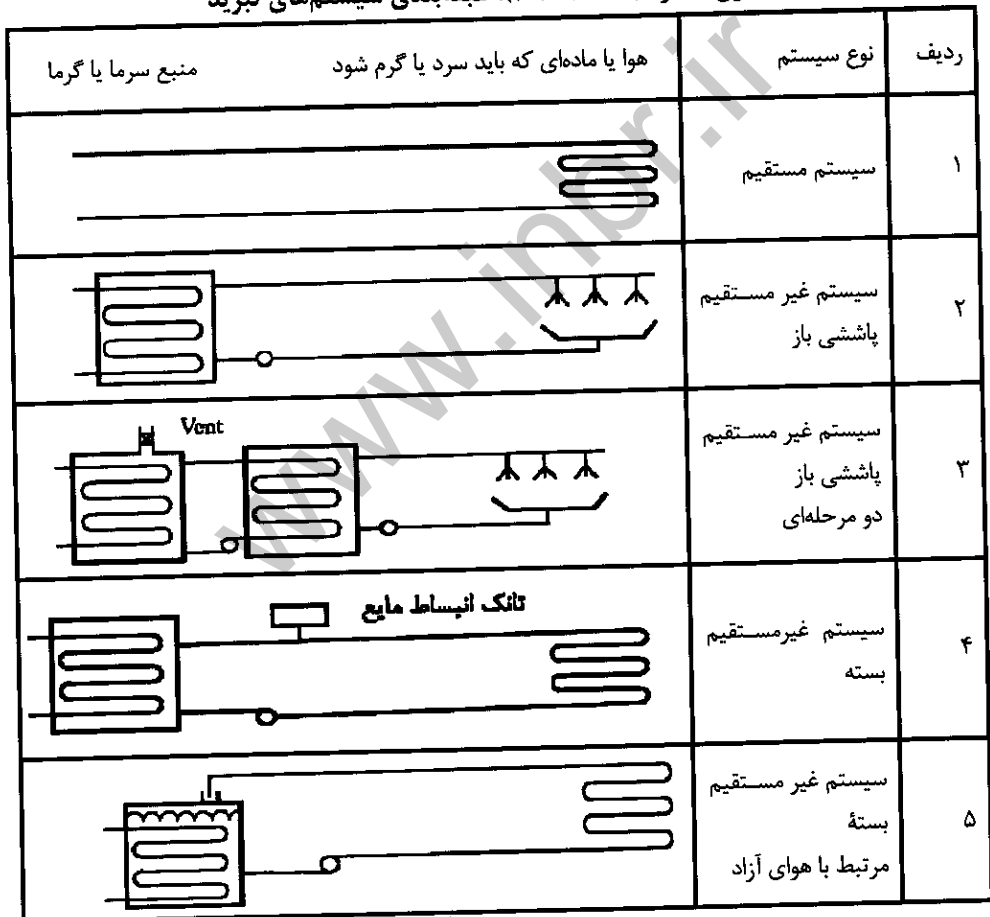 طبقه‌بندی سیستم‌های تبرید
ردیف نوع سیستم هوا یا ماده‌ای که باید سرد یا گرم شود منبع سرما یا گرما
۱ سیستم مستقیم
۲ سیستم غیر مستقیم
پاششی باز
۳ سیستم غیر مستقیم
پاششی باز
دو مرحله‌ای
Vent
۴ سیستم غیرمستقیم
بسته
تانک انبساط مایع
۵ سیستم غیر مستقیم
بستهٔ
مرتبط با هوای آزاد
www.inbr.ir